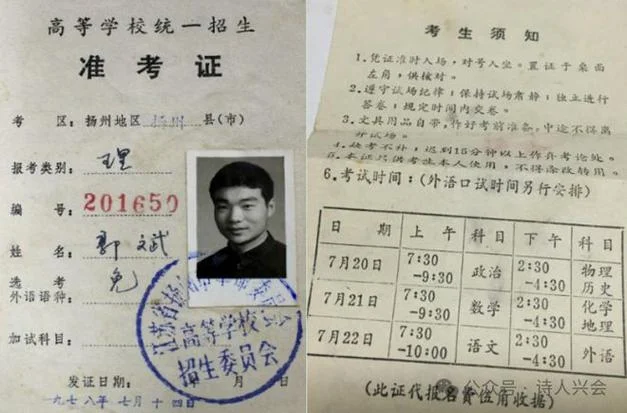 高等学校统一招生
准考证
考 区：扬州地区 扬州 县(市)
报考类别：理
编 号：201650
姓 名：郭斌
选考
外语语种：免
加试科目：
发证日期： 月 日
一九七八年七月十四日
高等学校
招生委员会
考生须知
1.凭证准时入场，对号入坐。置证于桌面
左角，供核对。
2.遵守试场纪律；保持试场肃静；独立进行
答卷；规定时间内交卷。
3.文具用品自带，作好考前准备，中途不得离
开试场。
4.缺考不补，迟到15分钟以上作弃考论处。
5.本证只供考生本人使用，不得涂改转用。
6.考试时间：(外语口试时间另行安排)
日期 上午 科目 下午 科目
7月20日 7:30-9:30 政治 2:30-4:30 物理 历史
7月21日 7:30-9:30 数学 2:30-4:30 化学 地理
7月22日 7:30-10:00 语文 2:30-4:30 外语
(此证代报名费伍角收据)
公众号·诗人兴会